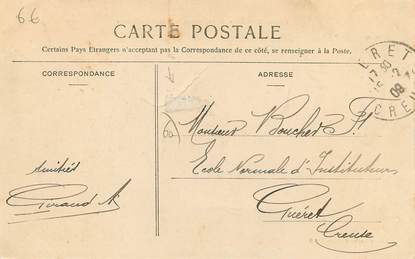 66
CARTE POSTALE
Certains Pays Etrangers n'acceptant pas la Correspondance de ce côté, se renseigner à la Poste.
CORRESPONDANCE
ADRESSE
Monsieur Boucher P.
Ecole Normale d'Instituteurs
Guéret
Creuse
Amitiés
Giraud A